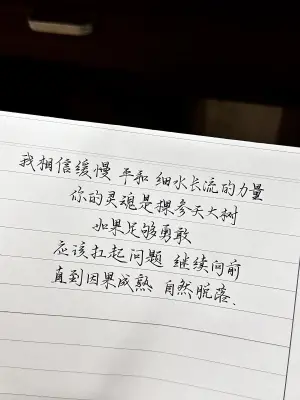 我相信缓慢 平和 细水长流的力量
你的灵魂是棵参天大树
如果足够勇敢
应该扛起问题 继续向前
直到因果成熟 自然脱落.